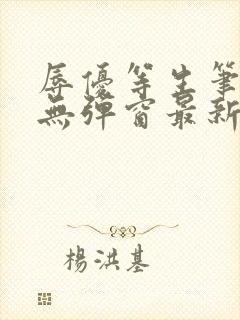 辱優等生筆
無彈窗最新
楊洪基